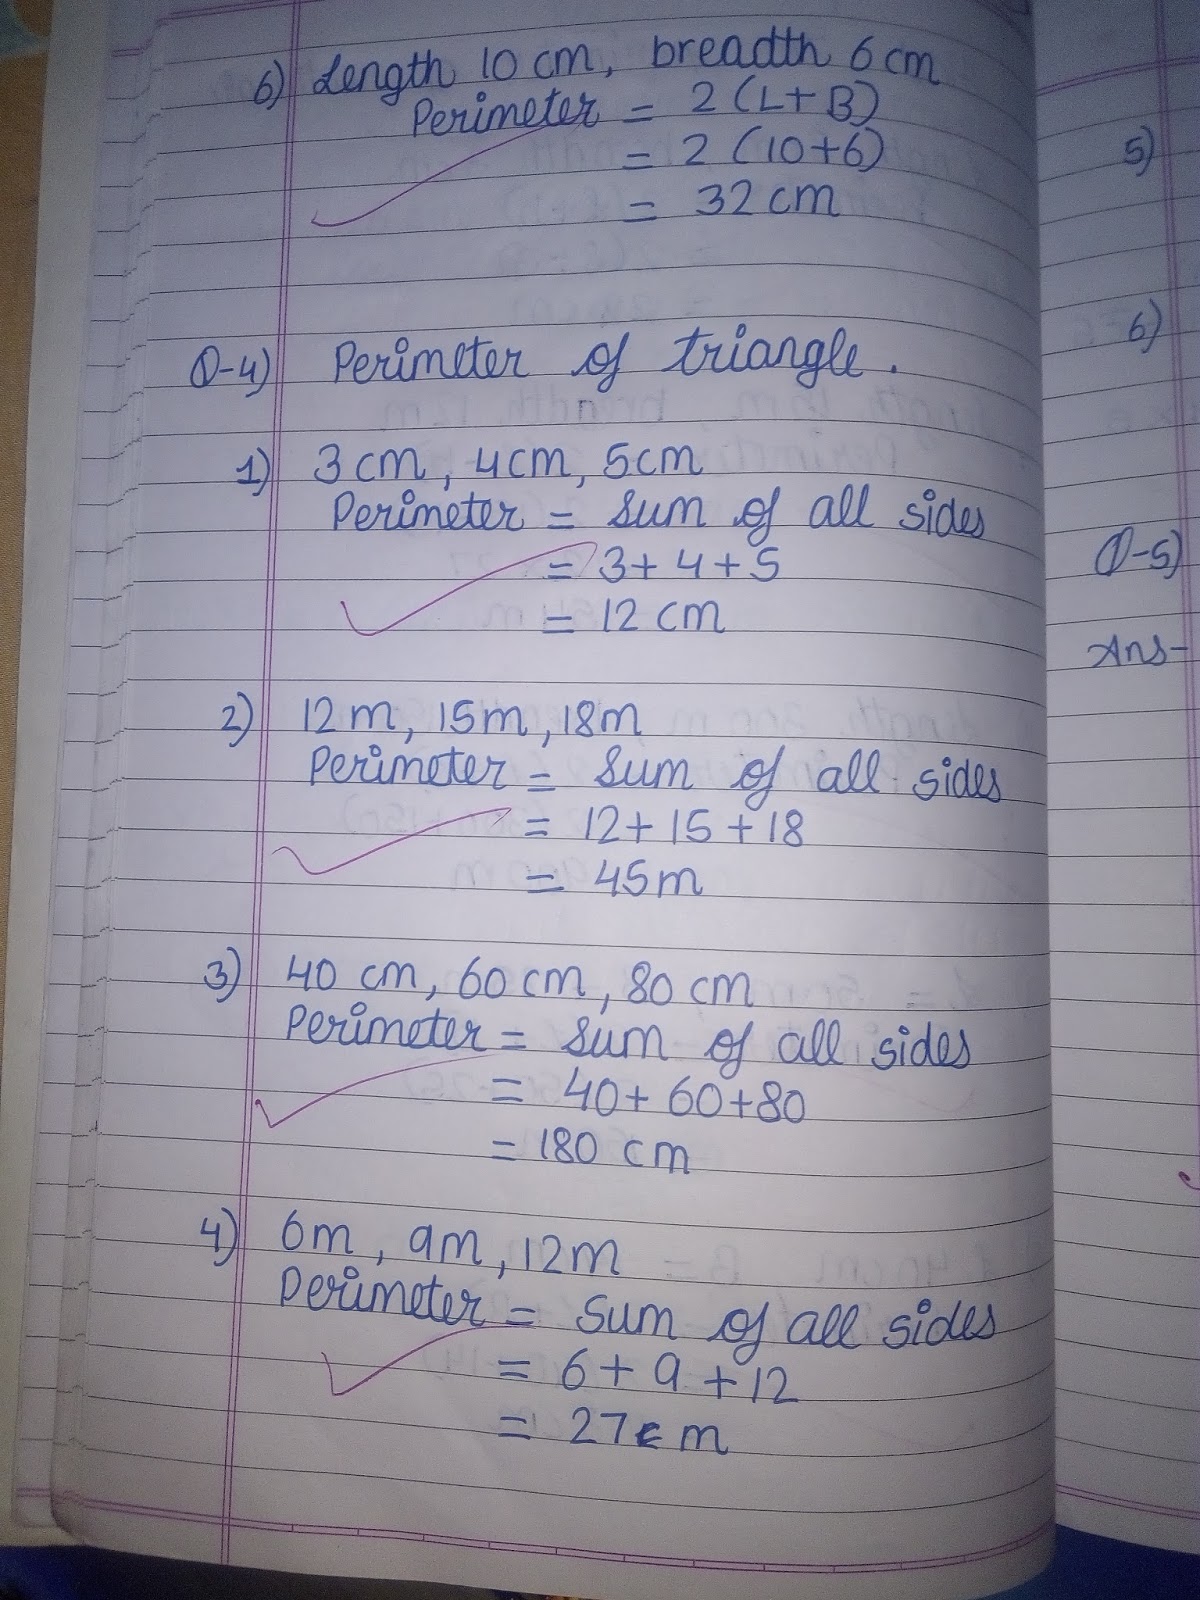 6) Length 10 cm, breadth 6 cm
Perimeter = 2 (L+B)
= 2 (10+6)
= 32 cm
Q-4) Perimeter of triangle.
1) 3 cm, 4 cm, 5 cm
Perimeter = Sum of all sides
= 3 + 4 + 5
= 12 cm
2) 12 m, 15 m, 18 m
Perimeter = Sum of all sides
= 12 + 15 + 18
= 45 m
3) 40 cm, 60 cm, 80 cm
Perimeter = Sum of all sides
= 40 + 60 + 80
= 180 cm
4) 6 m, 9 m, 12 m
Perimeter = Sum of all sides
= 6 + 9 + 12
= 27 m
5)
6)
Q-5)
Ans-